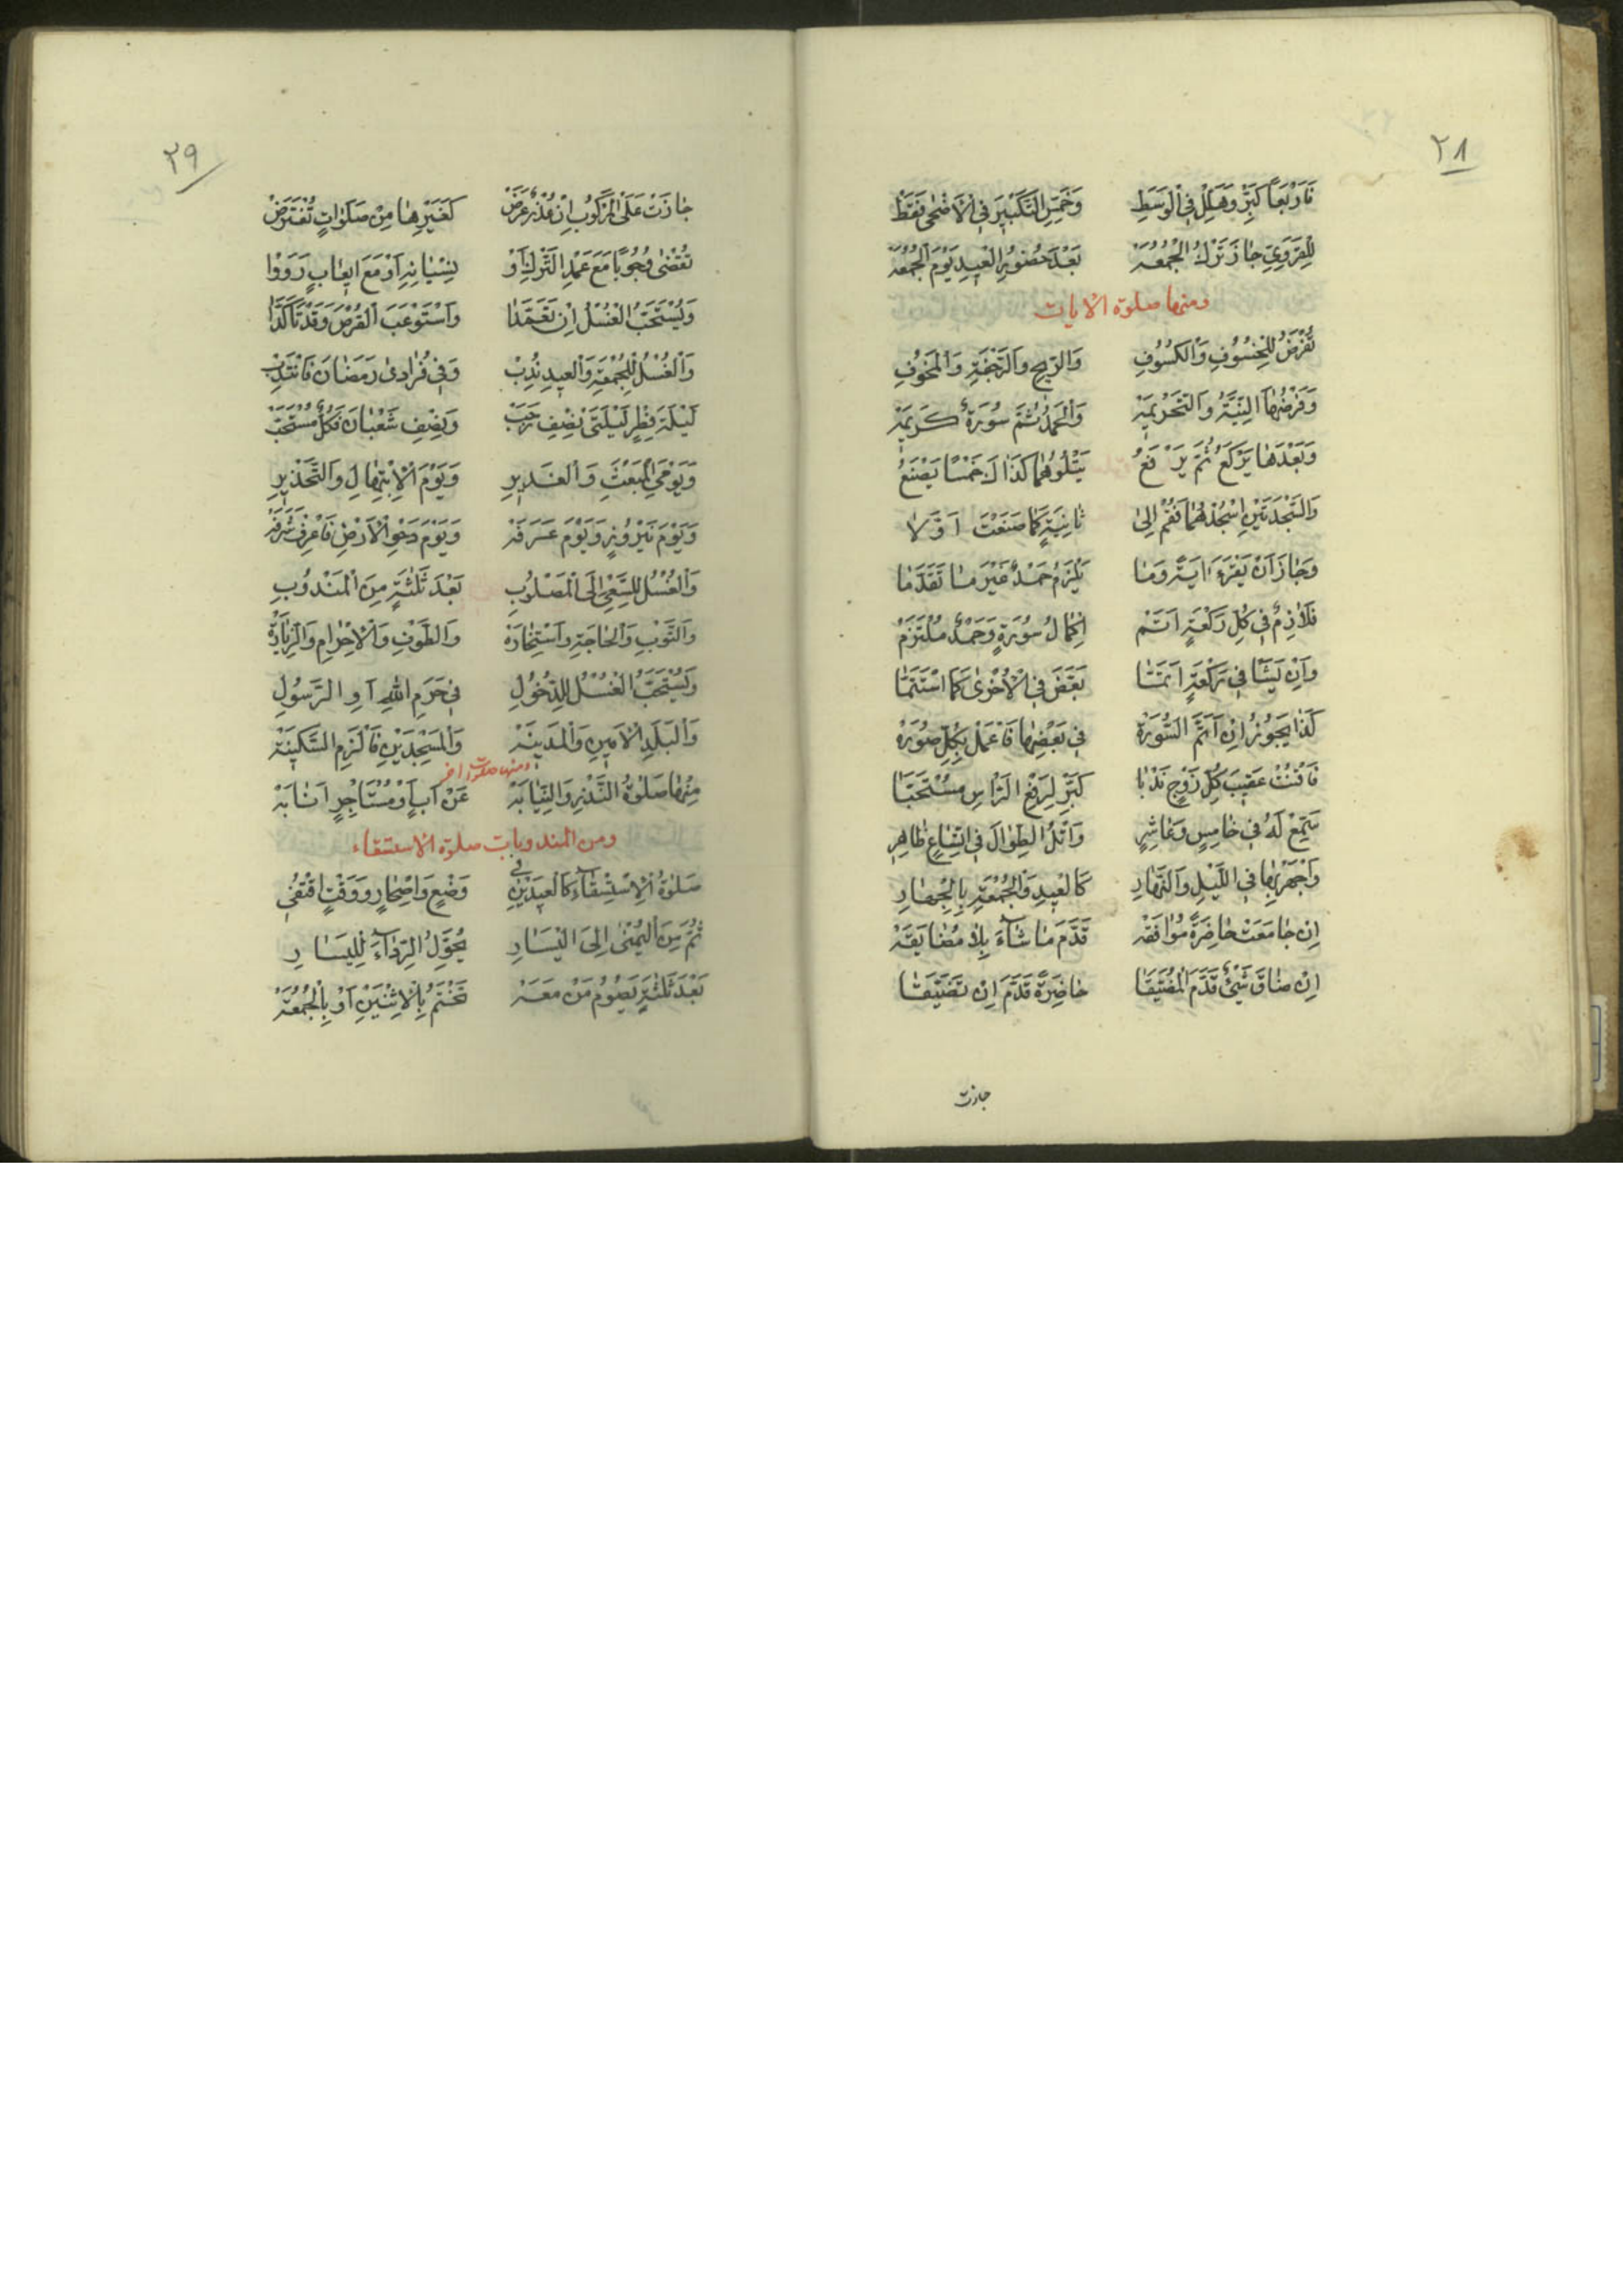 ٢٨
فَارْبَعاً كَبِّرْ وَهَلِّلْ فِي الْوَسَطِ وَخَمِّسِ التَّكْبِيرَ فِي الْأَضْحٰى فَقَطْ
لِلْقَرَوِيِّ جٰازَ تَرْكُ الْجُمُعَةْ بَعْدَ حُضُورِ الْعِيدِ يَوْمَ الْجُمُعَةْ
ومنها صلوة الايات
تُفْرَضُ لِلْخُسُوفِ وَالْكُسُوفِ وَالرِّيحِ وَالرَّجْفَةِ وَالْمَخُوفِ
وَفَرْضُهَا النِّيَّةُ وَالتَّحْرِيمَةْ وَالْحَمْدُ ثُمَّ سُورَةٌ كَرِيمَةْ
وَبَعْدَهٰا يَرْكَعُ ثُمَّ يَرْفَعُ يَتْلُوهُمٰا كَذٰاكَ خَمْسًا يَصْنَعُ
وَالسَّجْدَتَيْنِ اسْجُدْهُمٰا فَقُمْ اِلىٰ ثٰانِيَةٍ كَمٰا صَنَعْتَ اَوَّلاٰ
وَجٰازَ اَنْ يَقْرَءَ اٰيَةً وَمٰا يَلْزَمُ حَمْدٌ غَيْرَ مٰا تَقَدَّمٰا
فَلاٰزِمٌ فِي كُلِّ رَكْعَةٍ اَتَمْ اِكْمٰالُ سُورَةٍ وَحَمْدٌ مُلْتَزَمْ
وَاِنْ يَشَا فِي رَكْعَةٍ اَتَمَّتٰا بَعَّضَ فِي الْاُخْرىٰ كَمَا اسْتَتَمَّتٰا
كَذٰا يَجُوزُ اِنْ اَتَمَّ السُّورَةْ فِي بَعْضِهٰا فَاعْمَلْ بِكُلِّ صُورَةْ
فَاقْنُتْ عَقِيبَ كُلِّ زَوْجٍ نَدْبًا كَبِّرْ لِرَفْعِ الرَّاْسِ مُسْتَحَبًّا
سَمِّعْ لَهُ فِي خٰامِسٍ وَعٰاشِرٍ وَاتْلُ الطِّوٰالَ فِي اتِّسٰاعٍ ظٰاهِرٍ
وَاجْهَرْ بِهٰا فِي اللَّيْلِ وَالنَّهٰارِ كَالْعِيدِ وَالْجُمْعَةِ بِالْجِهٰارِ
اِنْ جٰامَعَتْ حٰاضِرَةً مُوٰافَقَةْ قَدَّمَ مٰا شٰآءَ بِلاٰ مُضٰايَقَةْ
اِنْ ضٰاقَ شَيْئٌ قَدَّمَ الْمُضَيَّقٰا حٰاضِرَةً قَدَّمَ اِنْ تَضَيَّقٰا
جازت
٢٩
جٰازَتْ عَلَى الرُّكُوبِ اِنْ عُذْرٌ عَرَضْ كَغَيْرِهٰا مِنْ صَلَوٰاتٍ تُفْتَرَضْ
تُقْضٰى وُجُوبًا مَعَ عَمْدِ التَّرْكِ اَوْ نِسْيٰانِهِ اَوْ مَعَ ايعٰابٍ رَوَوْا
وَيُسْتَحَبُّ الْغُسْلُ اِنْ تَعَمَّدٰا وَاسْتَوْعَبَ الْقُرْصَ وَقَدْ تَاَكَّدٰا
وَالْغُسْلُ لِلْجُمْعَةِ وَالْعِيدِ نُدِبْ وَفِي فُرٰادىٰ رَمَضٰانَ فَانْتَدِبْ
لَيْلَةَ فِطْرٍ لَيْلَتَيْ نِصْفِ رَجَبْ وَنِصْفِ شَعْبٰانَ فَكُلٌّ مُسْتَحَبْ
وَيَوْمَيِ الْمَبْعَثِ وَالْغَدِيرِ وَيَوْمَ الْاِبْتِهٰالِ وَالتَّحْذِيرِ
وَيَوْمَ نَيْرُوزٍ وَيَوْمَ عَرَفَةْ وَيَوْمَ دَحْوِ الْاَرْضِ فَاعْرِفْ شَرَفَهْ
وَالْغُسْلُ لِلسَّعْيِ اِلَى الْمَصْلُوبِ بَعْدَ ثَلٰثَةٍ مِنَ الْمَنْدُوبِ
وَالتَّوْبِ وَالْحٰاجَةِ وَاسْتِخٰارَةْ وَالطَّوْفِ وَالْاِحْرٰامِ وَالزِّيٰارَةْ
وَيُسْتَحَبُّ الْغُسْلُ لِلدُّخُولِ فِي حَرَمِ اللهِ اَوِ الرَّسُولِ
وَالْبَلَدِ الْاَمِينِ وَالْمَدِينَةْ وَالْمَسْجِدَيْنِ فَالْزَمِ السَّكِينَةْ
ومنها صلوات اخر
مِنْهٰا صَلٰوةُ النَّذْرِ وَالنِّيٰابَةْ عَنْ اَبٍ اَوْ مُسْتَاْجِرٍ اَنٰابَهْ
ومن المندوبات صلوة الاستسقاء
صَلٰوةُ الْاِسْتِسْقٰآءِ كَالْعِيدَيْنِ فِي وَضْعٍ وَاِصْحٰارٍ وَوَقْتٍ اقْتُفِي
ثُمَّ مِنَ الْيُمْنٰى اِلَى الْيَسٰارِ يُحَوِّلُ الرِّدٰآءَ لِلْيَسٰارِ
بَعْدَ ثَلٰثَةٍ يَصُومُ مَنْ مَعَهْ تُخْتَمُ بِالْاِثْنَيْنِ اَوْ بِالْجُمُعَةْ